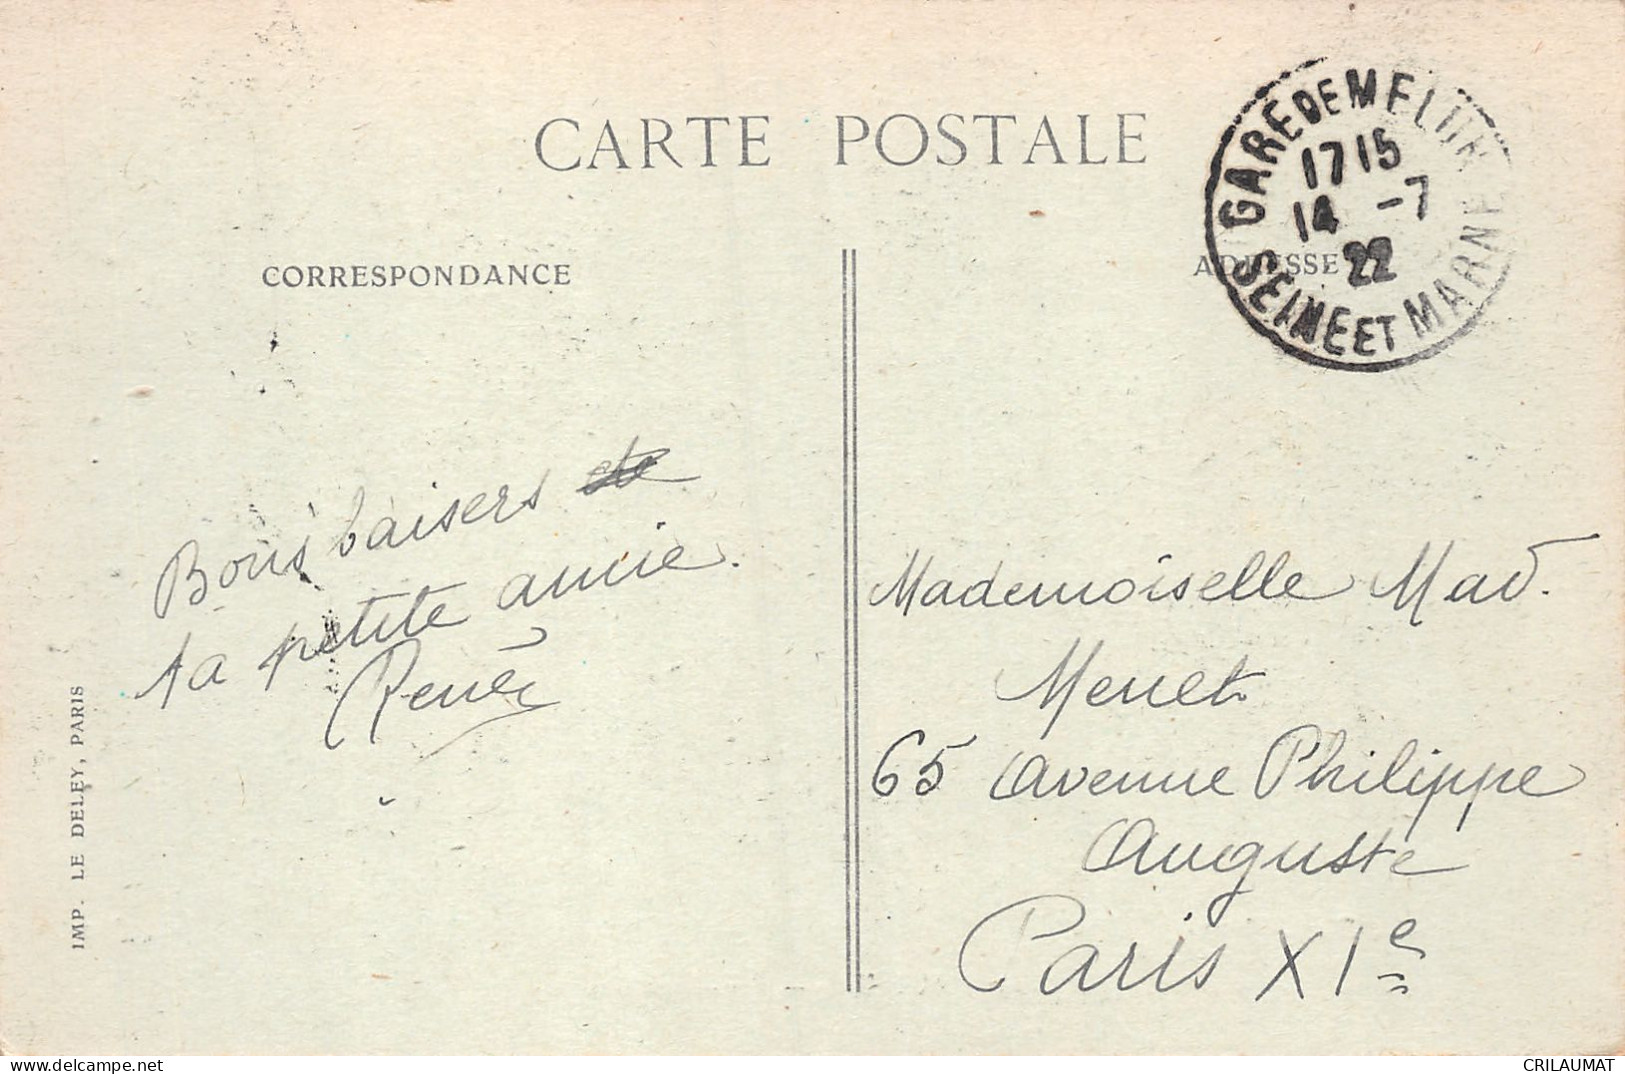 CARTE POSTALE
GARE DE MELUN
1715
14 -7
22
SEINE ET MARNE
CORRESPONDANCE
ADRESSE
Bons baisers
ta petite amie.
Renée
Mademoiselle Mad.
Menet
65 Avenue Philippe
Auguste
Paris XIe
IMP. LE DELEY, PARIS
www.delcampe.net
CRILAUMAT